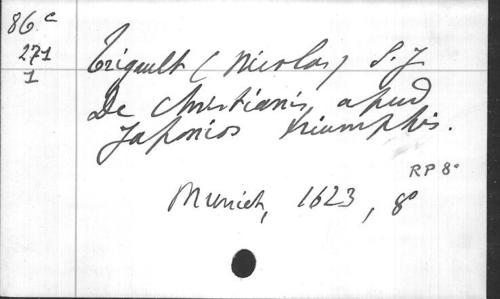 86 c
271
1
Trigault (Nicolas) S.J
De Christianis apud
Japonios triumphis.
RP 8o
Munich, 1623, 8o